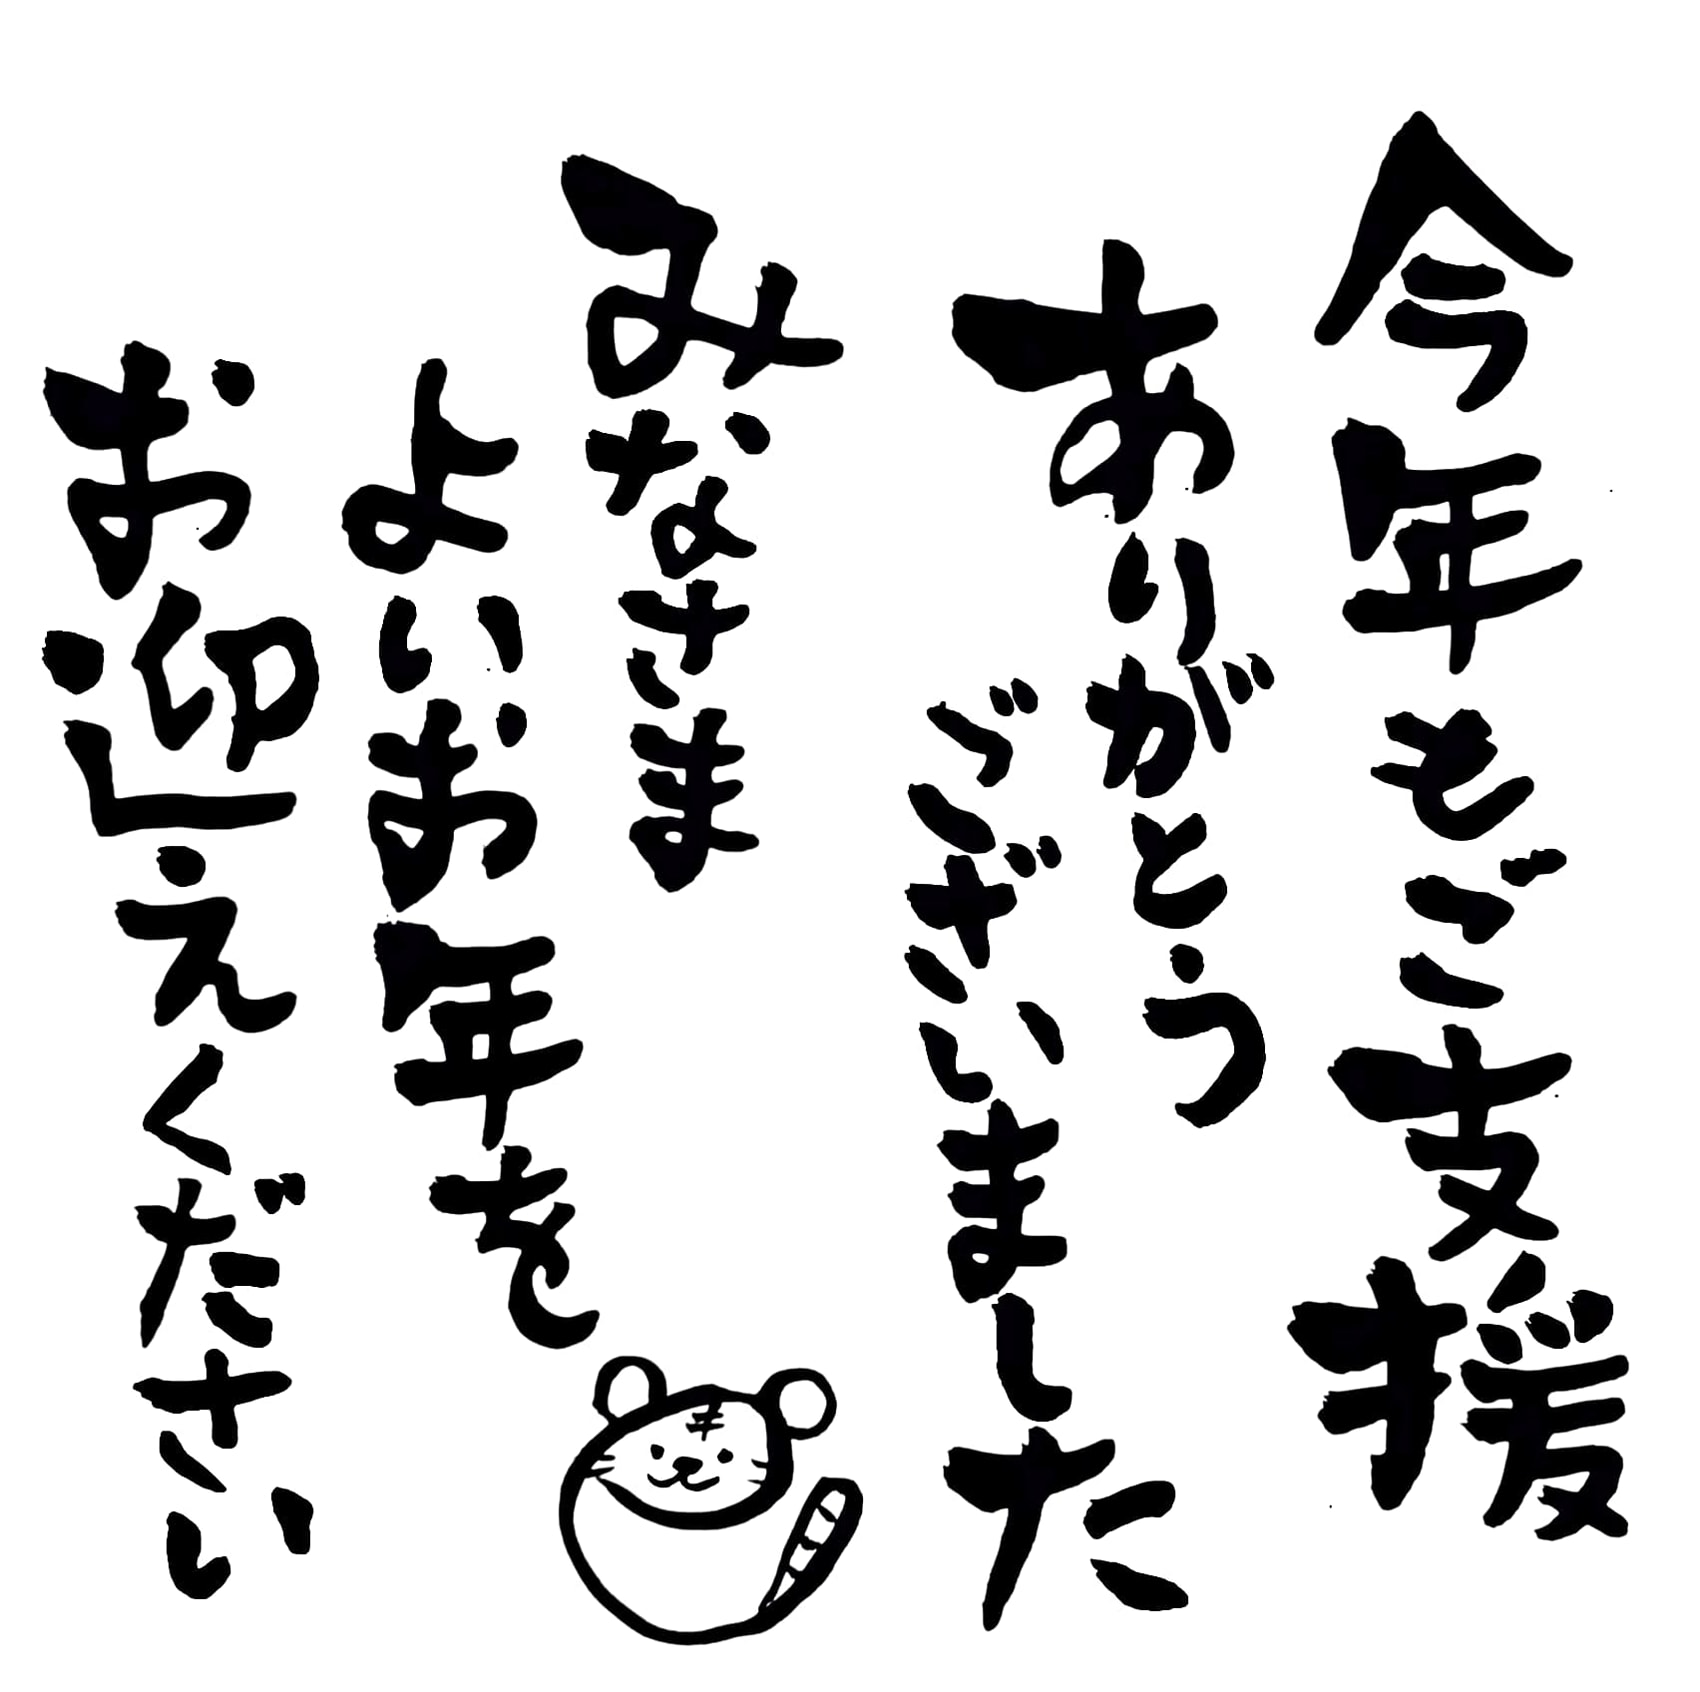 今年もご支援
ありがとう
ございました
みなさま
よいお年を
お迎えください